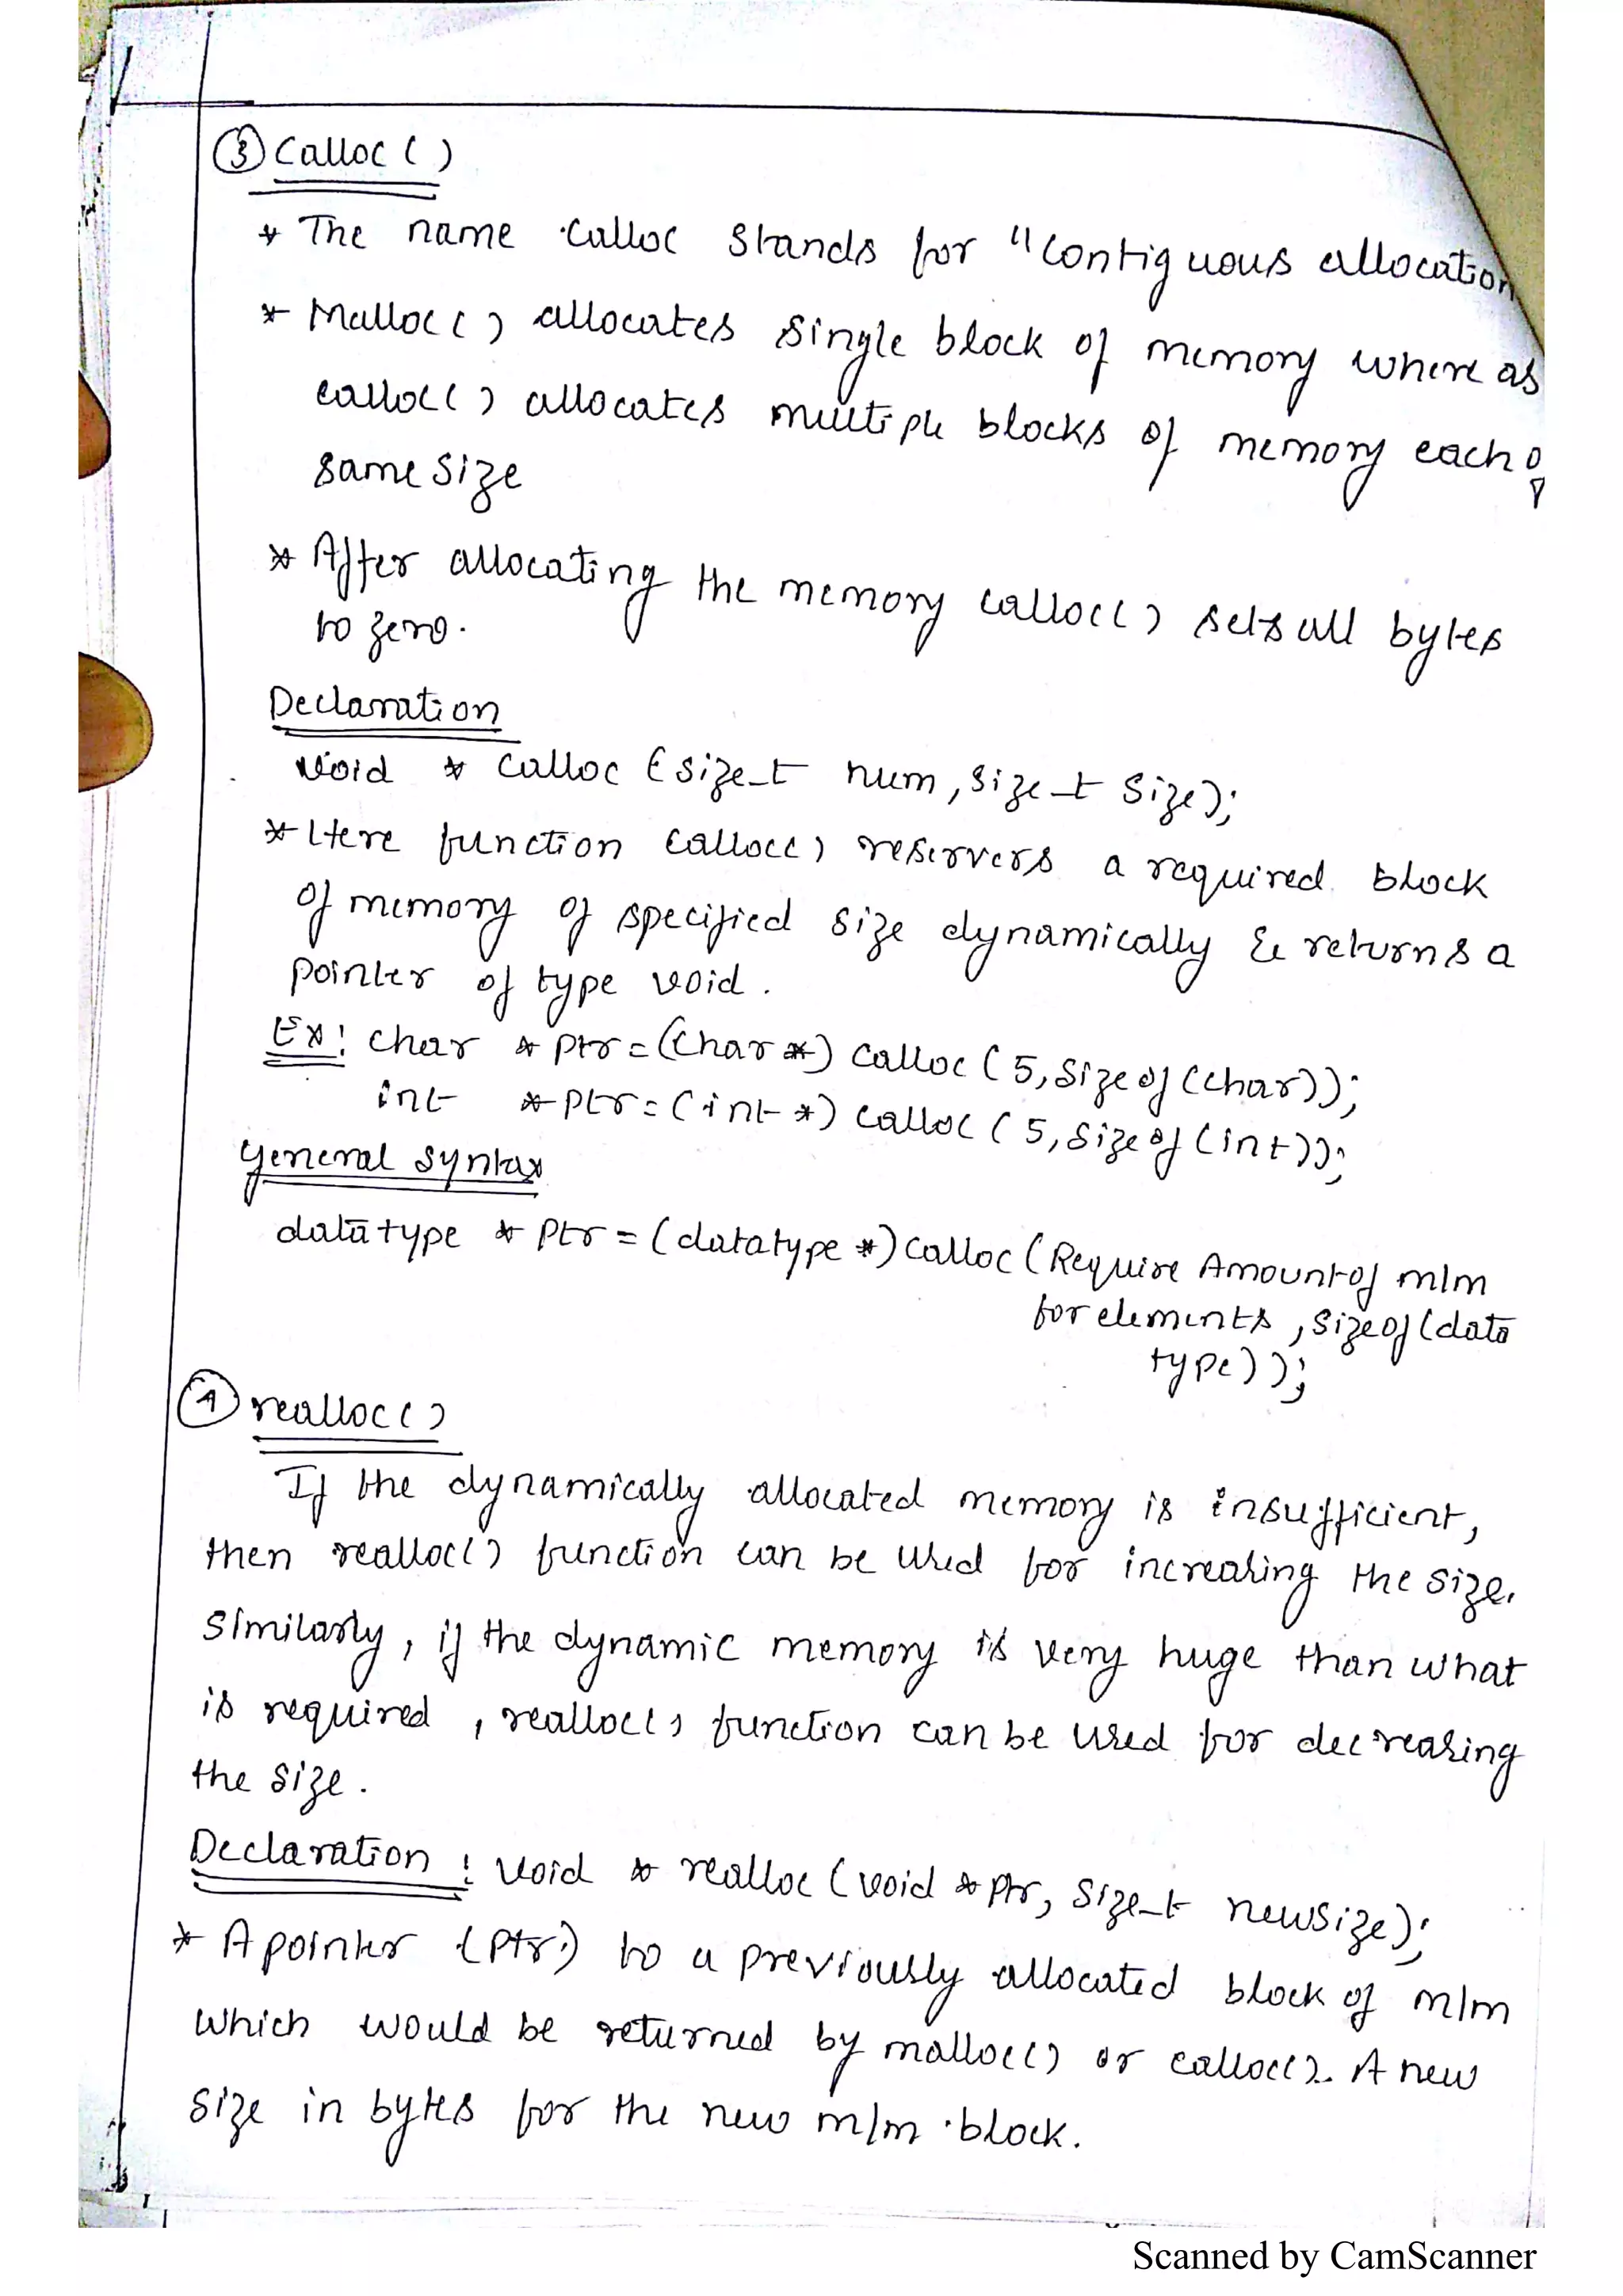 ③ Calloc ( )
* The name calloc stands for "contiguous allocation
* Malloc( ) allocates single block of memory where as
calloc( ) allocates multiple blocks of memory each of
same size
* After allocating the memory calloc( ) sets all bytes
to zero.
Declaration
void * calloc (size_t num, size_t size);
* Here function calloc( ) reservers a required block
of memory of specified size dynamically & returns a
pointer of type void.
Ex: char * ptr = (char *) calloc ( 5, sizeof (char));
int * ptr = (int *) calloc ( 5, sizeof (int));
general syntax
datatype * ptr = (datatype *) calloc (Require Amount of m/m
for elements, sizeof (data
type) );
④ realloc( )
If the dynamically allocated memory is insufficient,
then realloc( ) function can be used for increasing the size.
Similarly, if the dynamic memory is very huge than what
is required, realloc( ) function can be used for decreasing
the size.
Declaration : void * realloc (void * ptr, size_t newsize);
* A pointer (ptr) to a previously allocated block of m/m
which would be returned by malloc( ) or calloc( ). A new
size in bytes for the new m/m block.
Scanned by CamScanner